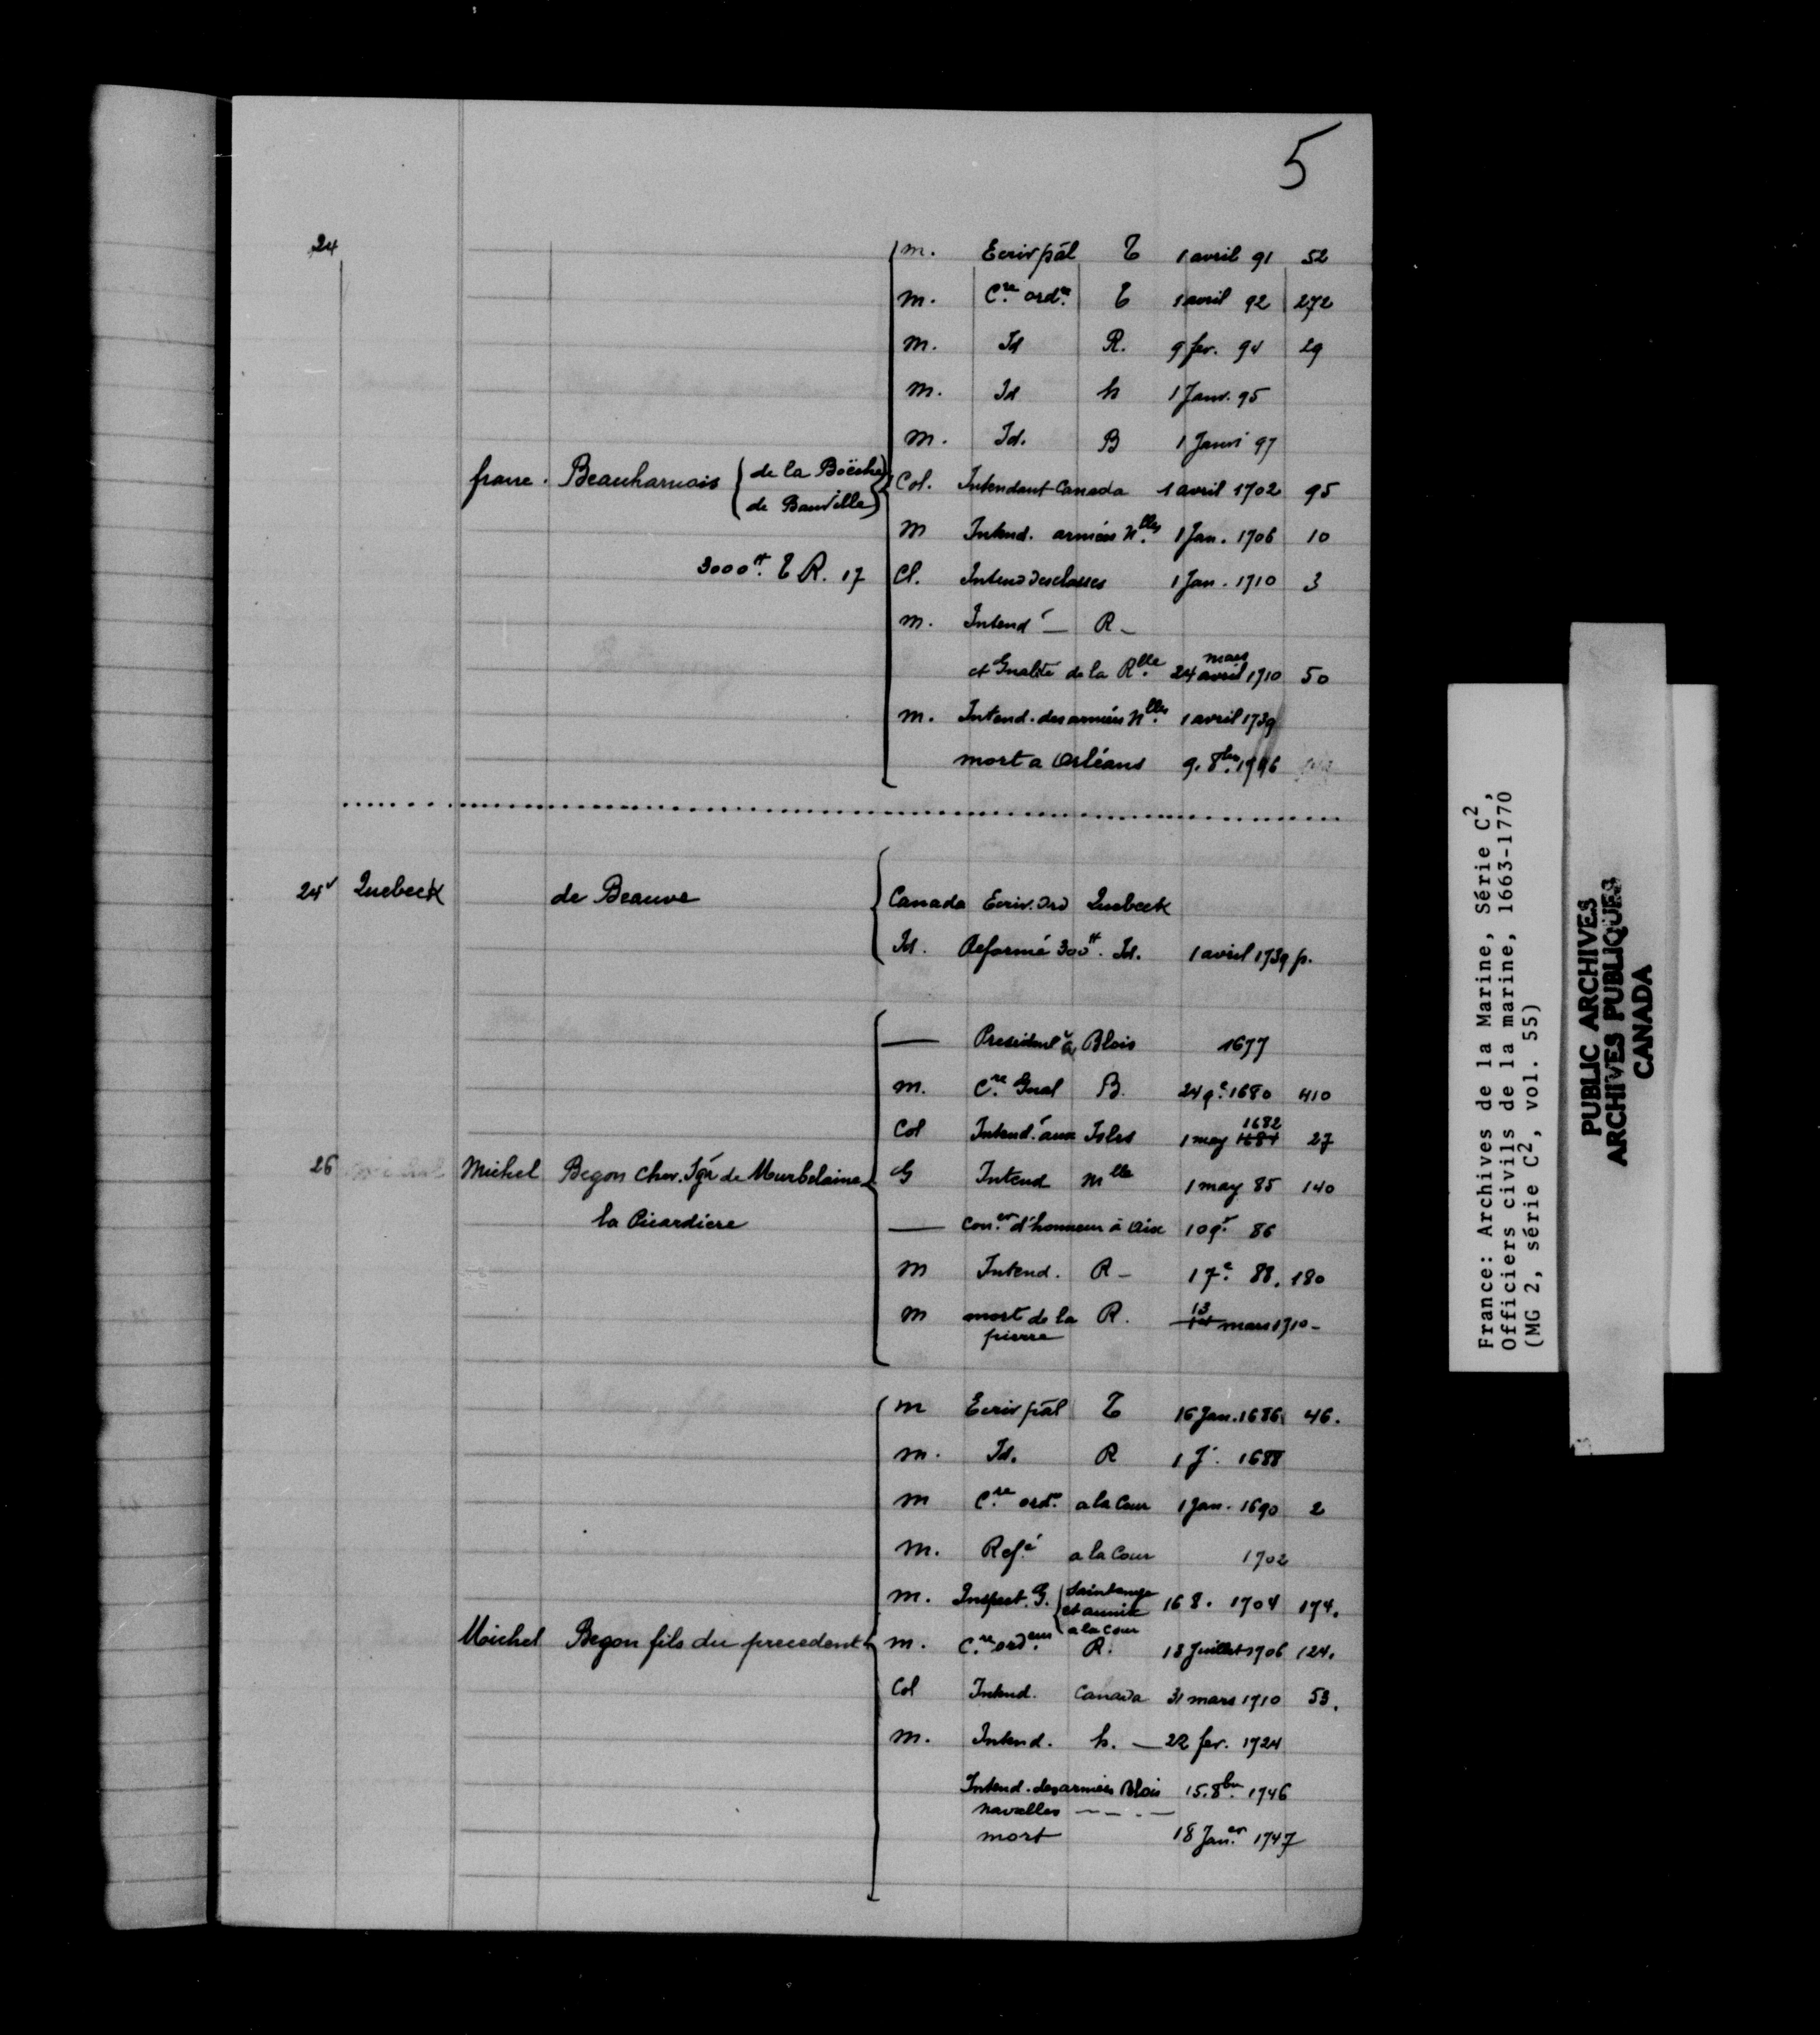 5
24
m. Ecriv pāl T 1 avril 91 52
m. C.re ord.re T 1 avril 92 272
m. Id R. 9 fev. 94 29
m. Id h 1 Janv. 95
m. Id. B 1 Janv 97
franc. Beauharnais (de la Boëshe) Col. Intendant Canada 1 avril 1702 95
(de Bauville)
M Intend. armées N.lles 1 Jan. 1706 10
3000tt. T R. 17 Cl. Intend des classes 1 Jan. 1710 3
m. Intend — R —
et Gnalité de la R.lle 24 mars avril 1710 50
m. Intend. des armées N.lles 1 avril 1739
mort a Orléans 9. 8bre. 1746
24v Quebeck de Beauve Canada Ecriv. Ord Quebeck
Id. Reformé 300tt. Id. 1 avril 1739 p.
— President à Blois 1677
m. C.re Gnal B. 24 9.e 1680 410
Col Intend. aux Isles 1 may 1682 1684 27
26 Michel Begon Chev. Sgr de Murbelaine G Intend Mlle 1 may 85 140
la Picardiere — Con.er d'honneur à Aix 10 9.r 86
M Intend. R — 1 7.e 88. 180
M mort de la pierre R. 13 mars 1710 —
m Ecriv pāl T 16 Jan. 1686 46.
m. Id. R 1 J. 1688
m C.re ord.re a la Cour 1 Jan. 1690 2
m. Ref.é a la Cour 1702
m. Inspect. G. (Saintonge et aunix a la Cour 16 8. 1704 174.
Michel Begon fils du precedent m. C.re ord.eur R. 18 Juillet 1706 124.
Col Intend. Canada 31 mars 1710 53.
m. Intend. h. — 22 fev. 1724
Intend. des armées Blois 15. 8bre. 1746
navalles — — . —
mort 18 Jan.er 1747
France: Archives de la Marine, Série C2,
Officiers civils de la marine, 1663-1770
(MG 2, série C2, vol. 55)
PUBLIC ARCHIVES
ARCHIVES PUBLIQUES
CANADA